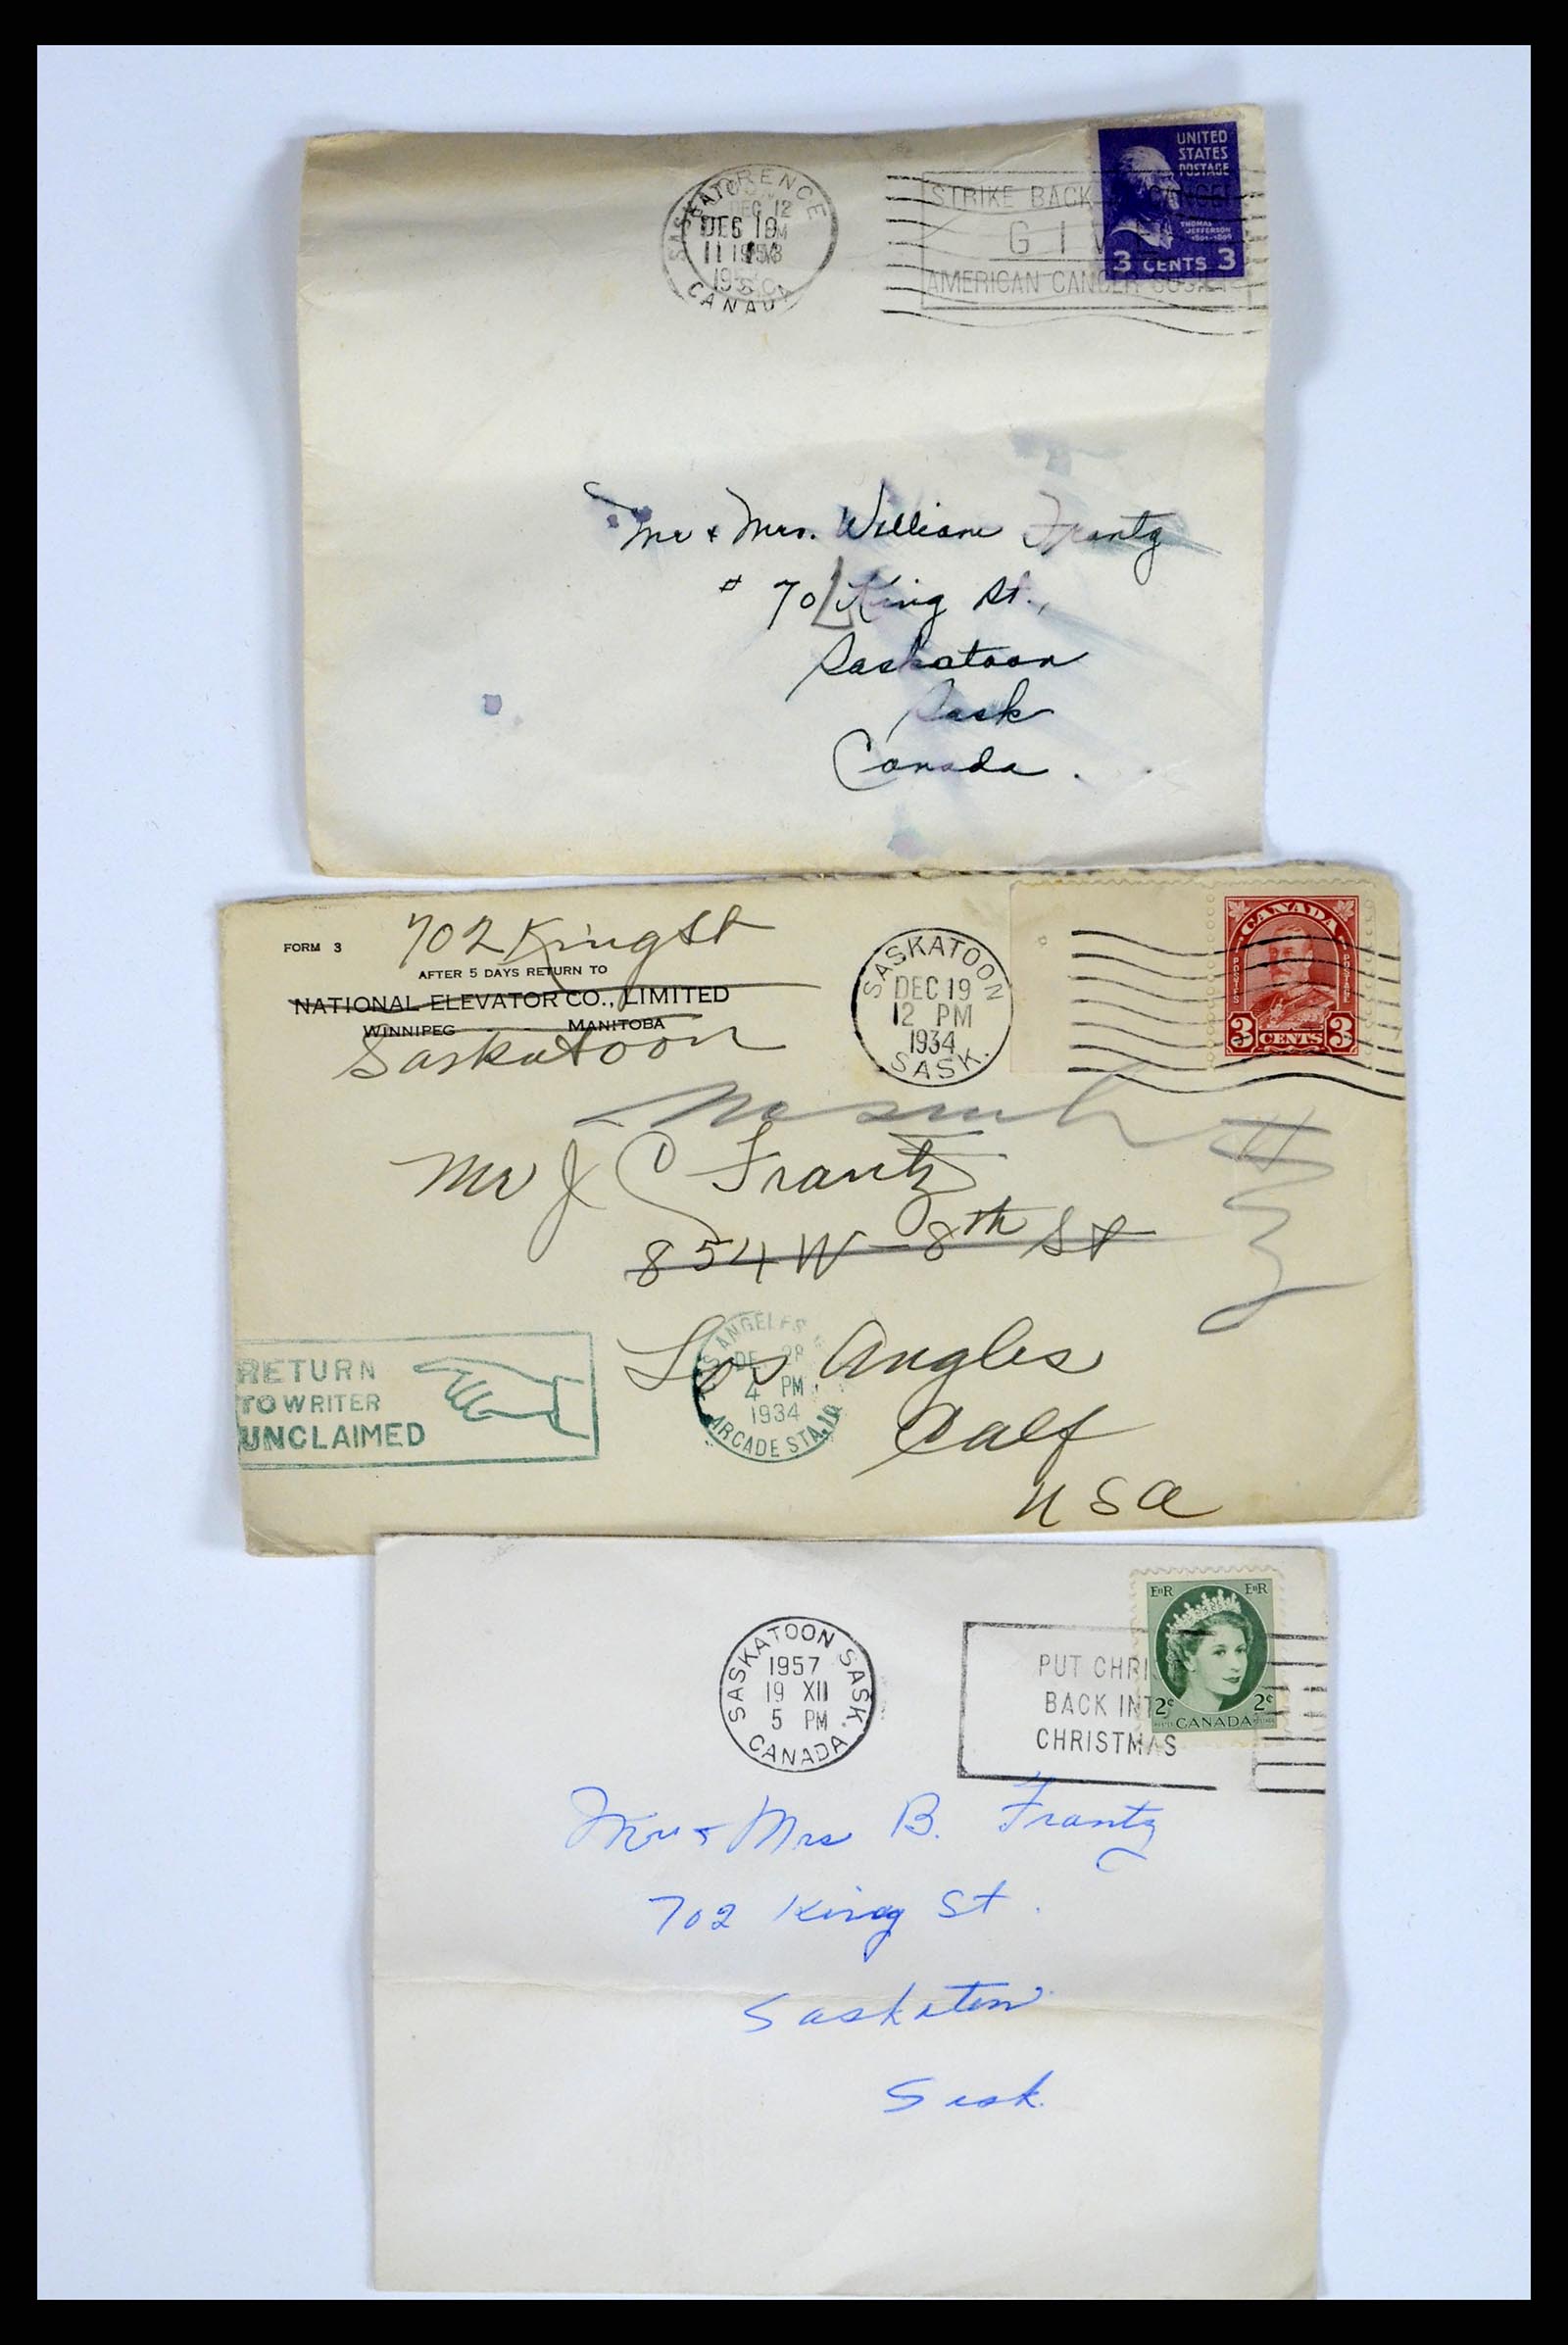 UNITED
STATES
POSTAGE
THOMAS
JEFFERSON
3 CENTS 3
SASKATOON
FLORENCE
DEC 12
CANADA
STRIKE BACK CANCER
GIVE
AMERICAN CANCER SOCIETY
Mr & Mrs. William Frantz
# 70 King St.,
Saskatoon
Sask
Canada.
FORM 3
702 King St
AFTER 5 DAYS RETURN TO
NATIONAL ELEVATOR CO., LIMITED
WINNIPEG MANITOBA
Saskatoon
SASKATOON
DEC 19
12 PM
1934
SASK.
CANADA
POSTES POSTAGE
3 CENTS 3
Mr J C Frantz
854 W-8th St
Los Angles
Calf
USA
RETURN
TO WRITER
UNCLAIMED
LOS ANGELES
DE 28
4 PM
1934
ARCADE STA.
SASKATOON SASK.
1957
19 XII
5 PM
CANADA
PUT CHRI
BACK INT
CHRISTMAS
EIIR EIIR
2¢ 2¢
CANADA
Mr & Mrs B. Frantz
702 King St.
Saskaton
Sask.